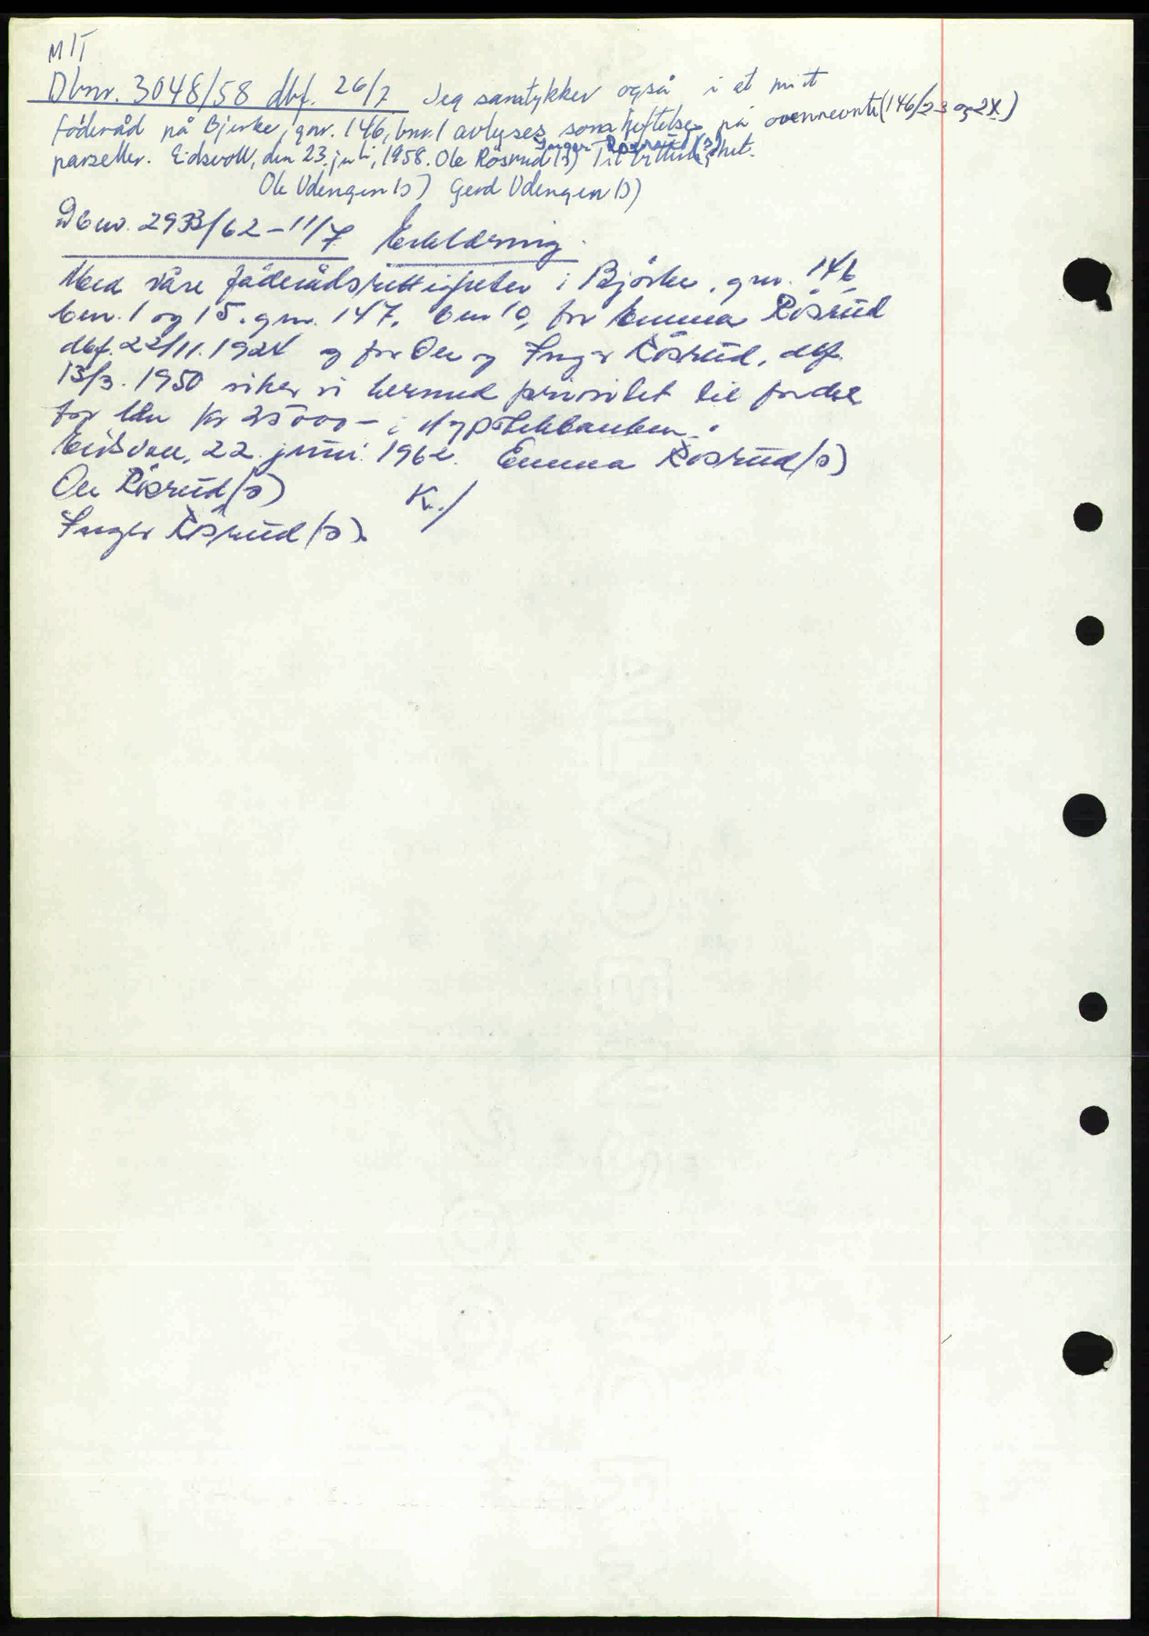 MIT
Dbnr. 3048/58 dbf. 26/7 Jeg samtykker også i at mitt
föderåd på Bjerke, gnr. 146, bnr. 1 avlyses som heftelse på ovennevnte (146/23 og 24)
parseller. Eidsvoll, den 23. juli, 1958. Ole Rösrud (s) Inger Rösrud (s) Til vitterlighet.
Ole Udengen (s) Gerd Udengen (s)
Dbnr. 2933/62 – 11/7 Erklæring.
Med våre föderådsrettigheter i Björke, gnr. 146
bnr. 1 og 15, gnr. 147, bnr 10, for Emma Rösrud
dbf. 22/11. 1924 og for Ole og Inger Rösrud, dbf.
13/3. 1950 viker vi herved prioritet til fordel
for lån kr 25000 – i Hypotekbanken.
Eidsvoll, 22. juni 1962. Emma Rösrud (s)
Ole Rösrud (s)
Inger Rösrud (s).